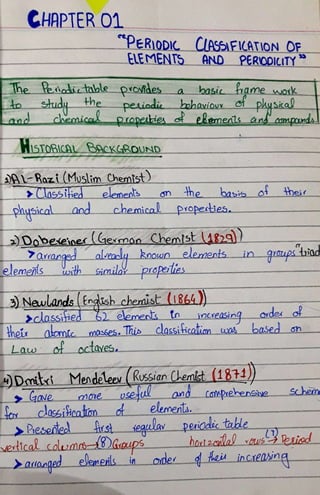 CHAPTER 01
"PERIODIC CLASSIFICATION OF
ELEMENTS AND PERIODICITY"
The Periodic table provides a basic frame work
to study the periodic behaviour of physical
and chemical properties of elements and compounds
HISTORICAL BACKGROUND
1) Al-Razi (Muslim Chemist)
➤ Classified elements on the basis of their
physical and chemical properties.
2) Dobereiner (German Chemist (1829))
➤ arranged already known elements in groups "triad
elements with similar properties
3) Newlands (English chemist (1864))
➤ classified 62 elements in increasing order of
their atomic masses. This classification was based on
Law of octaves.
4) Dmitri Mendeleev (Russian Chemist (1871))
➤ Gave more useful and comprehensive schem
for classification of elements.
➤ Presented first regular periodic table
vertical columns → (8) Groups horizontal rows (7) → Period
➤ arranged elements in order of their increasing